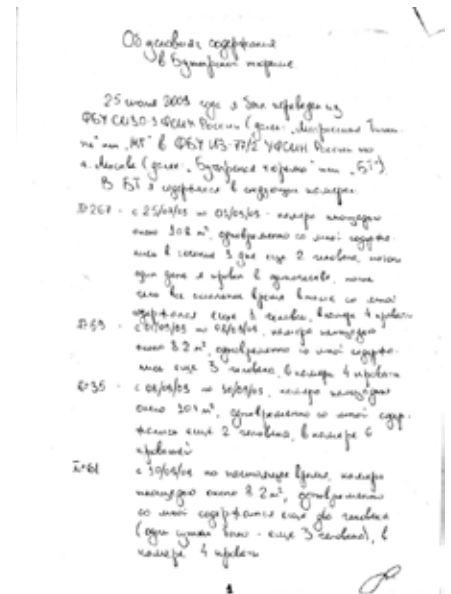 Об условиях содержания
в Бутырской тюрьме
25 июля 2009 года я был переведен из
ФБУ СИЗО-1 ФСИН России (далее: „Матросская Тиши-
на" или „МТ" в ФБУ ИЗ-77/2 УФСИН России по
г. Москве (далее: „Бутырская тюрьма" или „БТ").
В БТ я содержался в следующих камерах:
№267 - с 25/07/09 по 01/09/09 - камера площадью
около 10.8 м², одновременно со мной содержа-
лись в течение 3 дня еще 2 человека, потом
один день я провел в одиночестве, после
чего все остальное время вместе со мной
содержался еще 3 человек, в камере 4 кровати
№59 - с 01/09/09 по 08/09/09, камера площадью
около 8.2 м², одновременно со мной содержа-
лись еще 3 человека, в камере 4 кровати
с 08/09/09 по 10/09/09, камера площадью
около 10.4 м², одновременно со мной содер-
жались еще 2 человека, в камере 6
кроватей
№61 с 10/09/09 по настоящее время, камера
площадью около 8.2 м², одновременно
со мной содержатся еще два человека
(один сутки было - еще 3 человека), в
камере 4 кровати
1